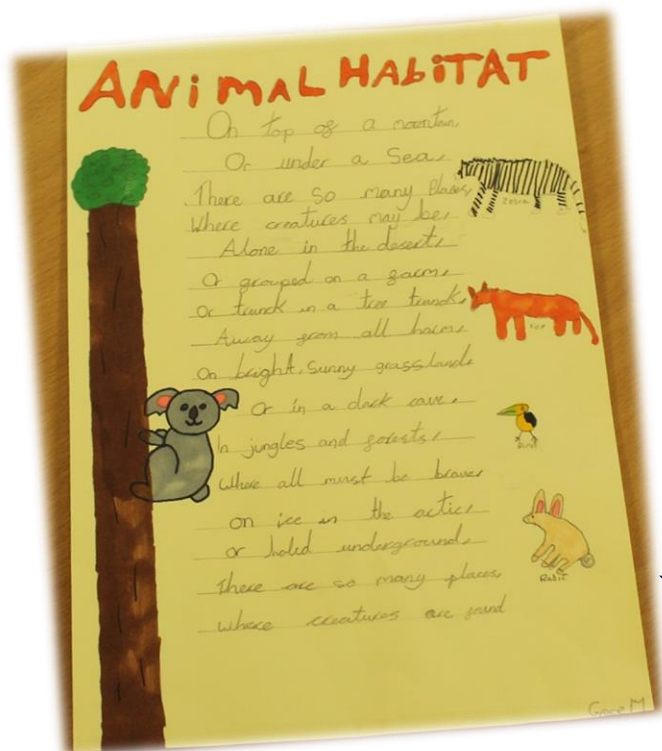 ANiMAL HAbiTAT
On top of a mountain,
Or under a Sea,
There are so many Places,
Zebra
Where creatures may be,
Alone in the desert,
Or grouped on a farm,
or trunck in a tree trunck,
fox
Away from all harm,
On bright, sunny grassland,
Or in a dark cave,
Bird
In jungles and forests,
Where all must be brave,
on ice in the actic,
or holed underground,
Rabit
There are so many places,
where creatures are found
M